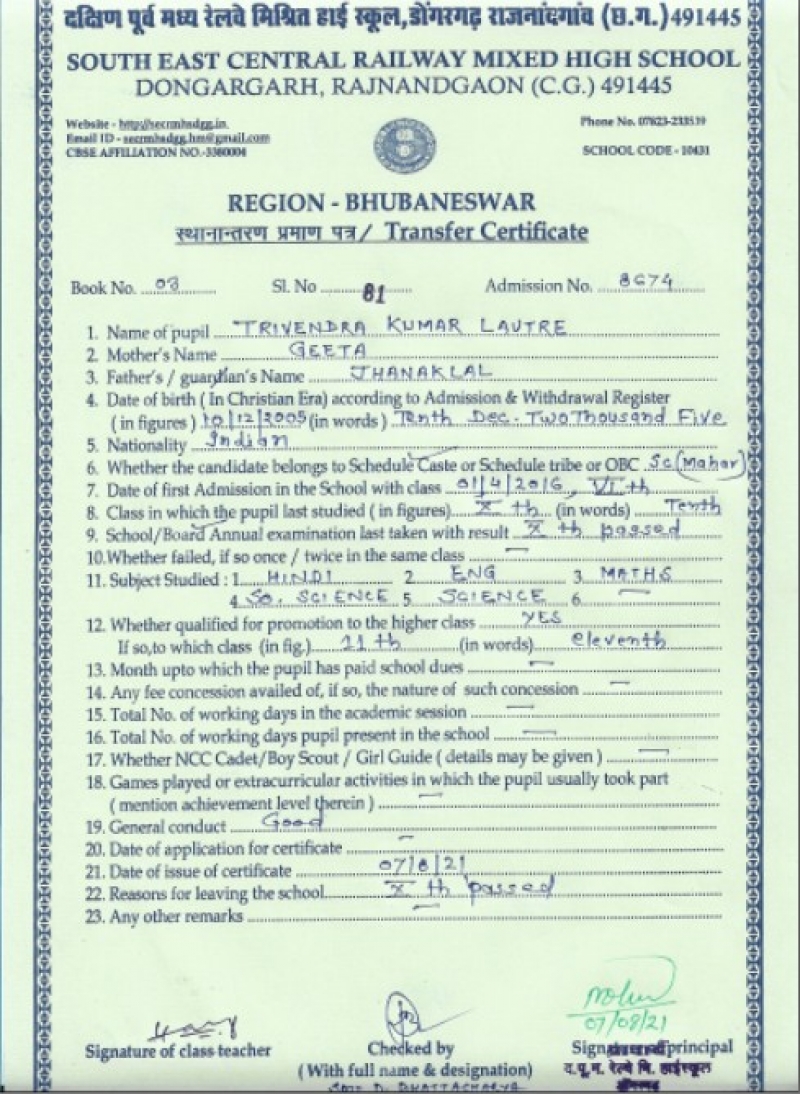 दक्षिण पूर्व मध्य रेलवे मिश्रित हाई स्कूल,डोंगरगढ़ राजनांदगांव (छ.ग.)491445
SOUTH EAST CENTRAL RAILWAY MIXED HIGH SCHOOL
DONGARGARH, RAJNANDGAON (C.G.) 491445
Website - http://secrmhsdgg.in
Phone No. 07823-233539
Email ID - secrmhsdgg.hm@gmail.com
CBSE AFFILIATION NO.-3360004
SCHOOL CODE - 10431
REGION - BHUBANESWAR
स्थानान्तरण प्रमाण पत्र / Transfer Certificate
Book No. 03 Sl. No 81 Admission No. 8674
1. Name of pupil TRIVENDRA KUMAR LAUTRE
2. Mother's Name GEETA
3. Father's / guardian's Name JHANAKLAL
4. Date of birth ( In Christian Era) according to Admission & Withdrawal Register
(in figures ) 10/12/2005 (in words ) Tenth Dec. Two Thousand Five
5. Nationality Indian
6. Whether the candidate belongs to Schedule Caste or Schedule tribe or OBC Sc (Mahar)
7. Date of first Admission in the School with class 01/4/2016, VIth
8. Class in which the pupil last studied ( in figures) X th (in words) Tenth
9. School/Board Annual examination last taken with result X th passed
10.Whether failed, if so once / twice in the same class —
11. Subject Studied : 1 HINDI 2 ENG 3 MATHS
4 SO. SCIENCE 5 SCIENCE 6. —
12. Whether qualified for promotion to the higher class YES
If so,to which class (in fig.) 11 th (in words) eleventh
13. Month upto which the pupil has paid school dues —
14. Any fee concession availed of, if so, the nature of such concession —
15. Total No. of working days in the academic session —
16. Total No. of working days pupil present in the school —
17. Whether NCC Cadet/Boy Scout / Girl Guide ( details may be given ) —
18. Games played or extracurricular activities in which the pupil usually took part
( mention achievement level therein ) —
19. General conduct Good
20. Date of application for certificate —
21. Date of issue of certificate 07/8/21
22. Reasons for leaving the school X th passed
23. Any other remarks —
07/08/21
Signature of class teacher
Checked by
principal
(With full name & designation)
द.पू.म. रेल्वे मि. हाईस्कूल
D. BHATTACHARYA